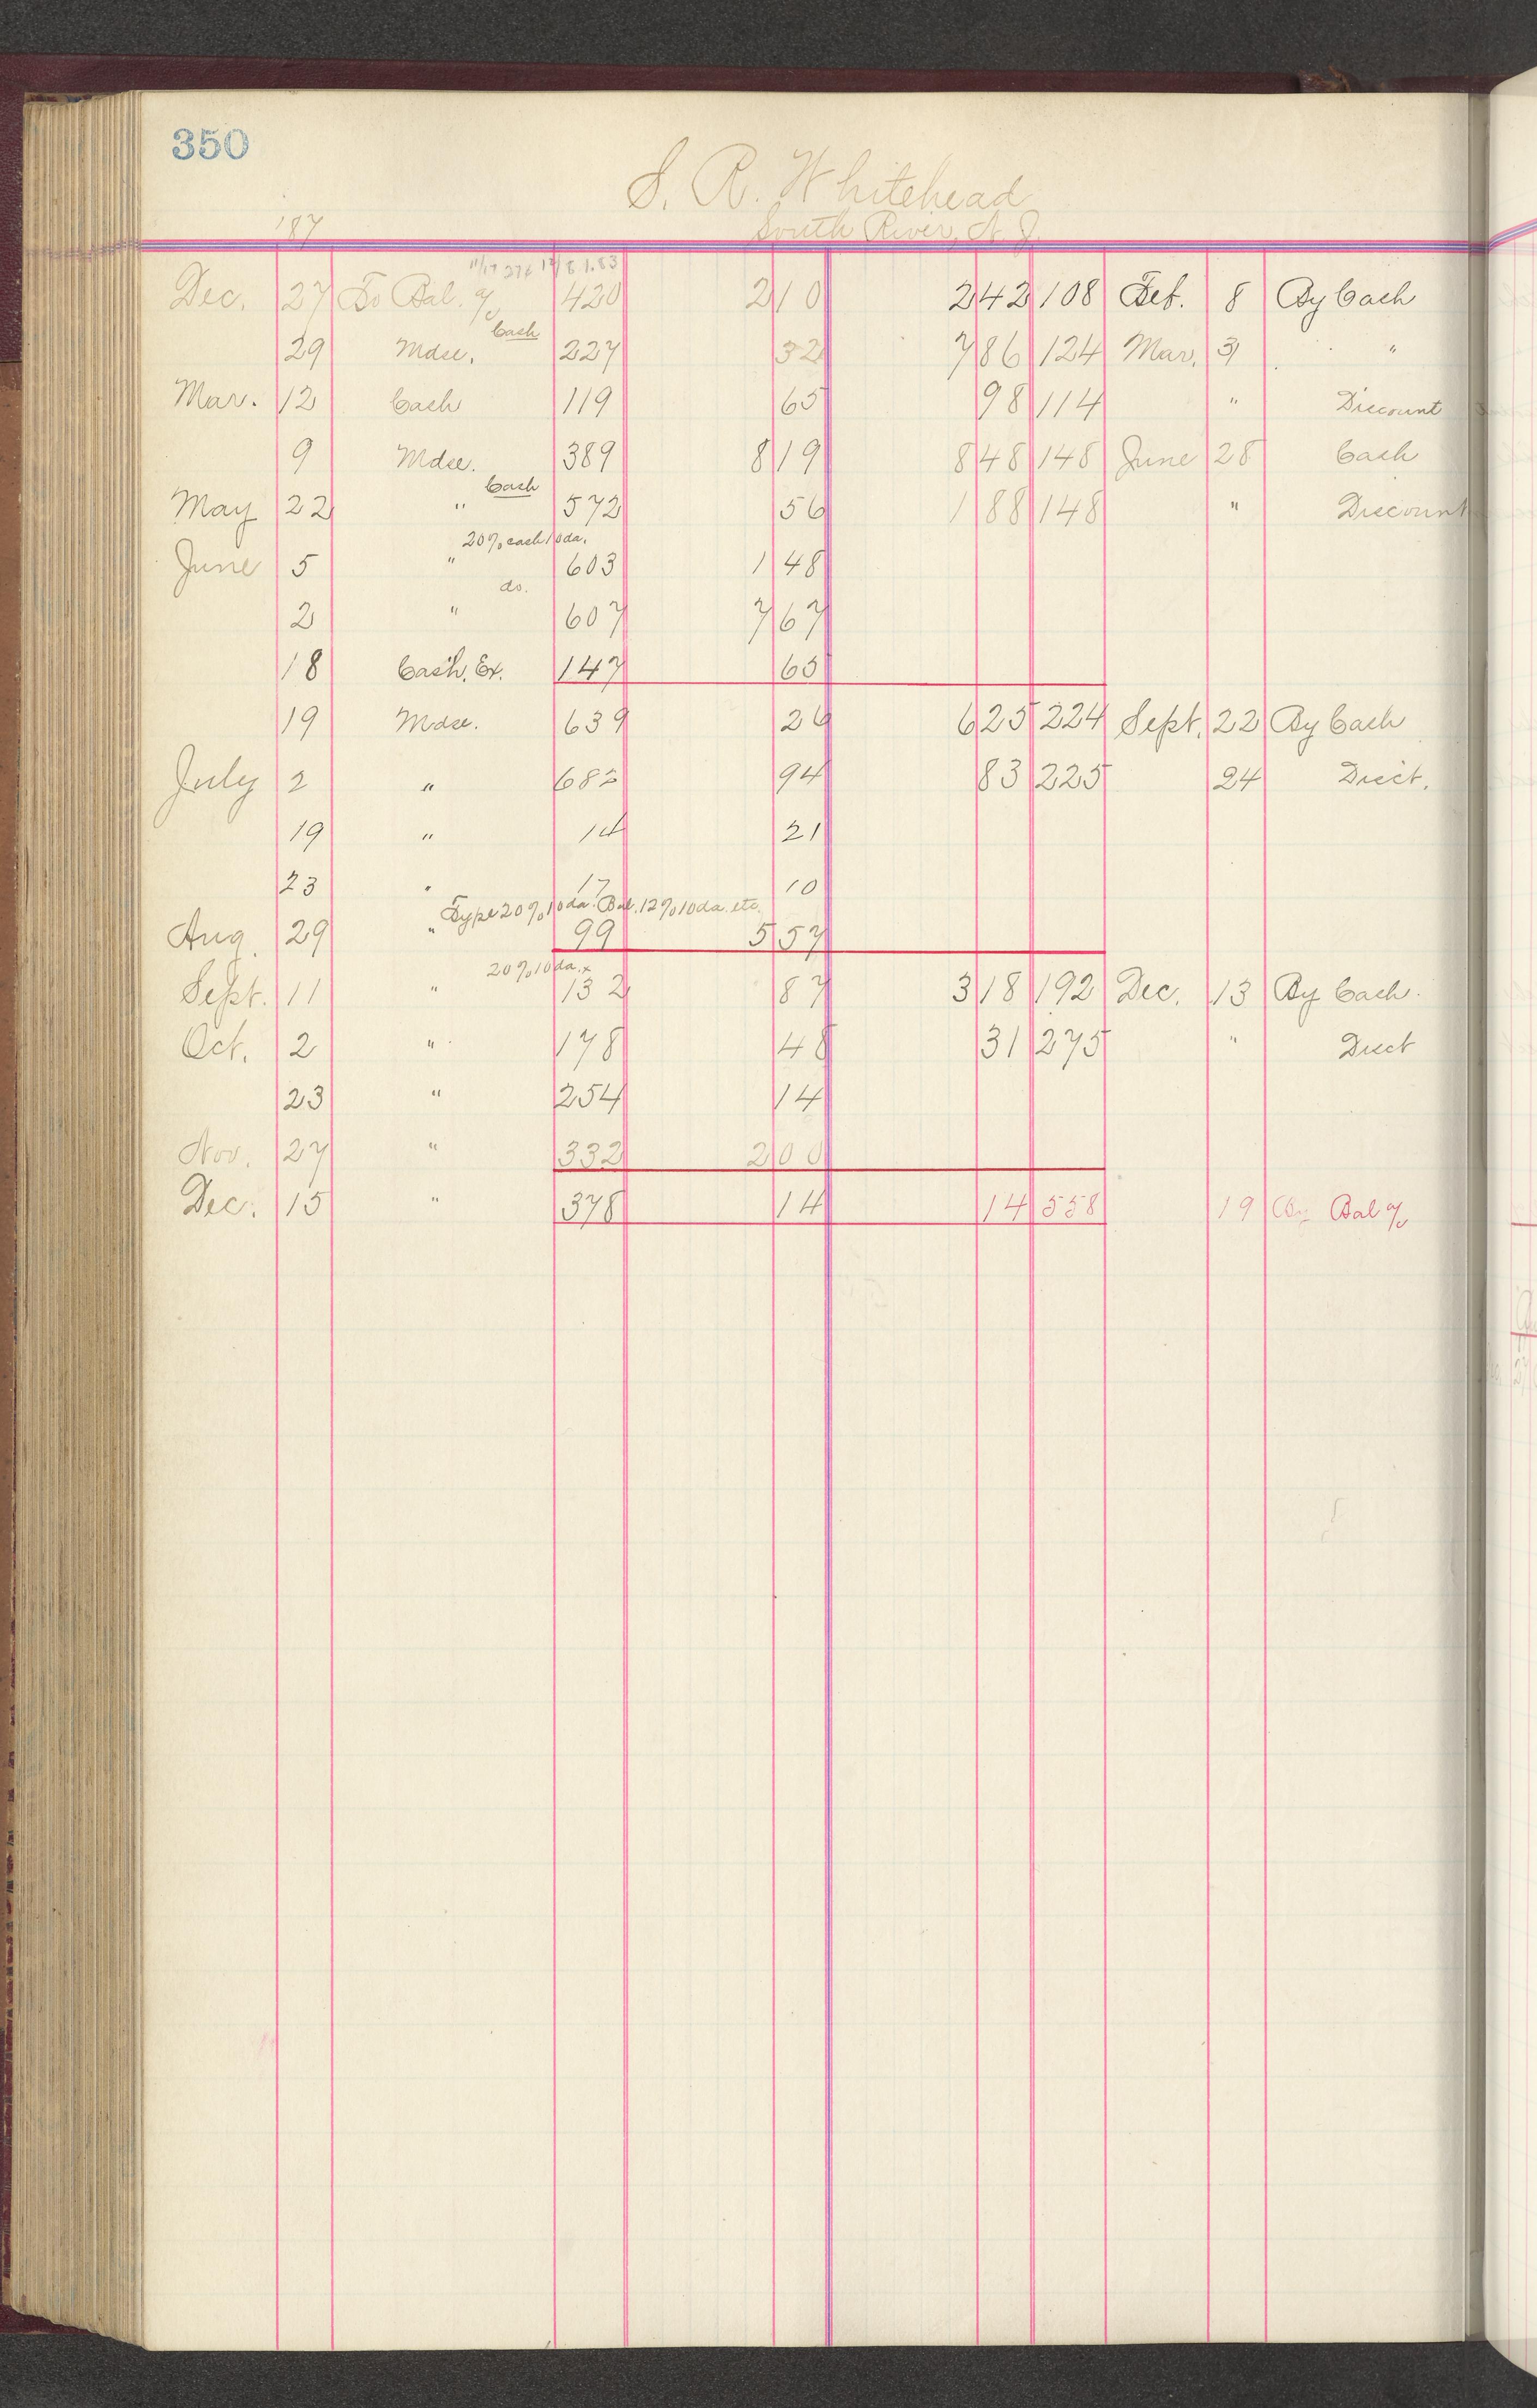 350
S. R. Whitehead
South River, N. J.
187
11/17 276 12/8 1.83
Dec. 27 To Bal. a/c 420 2 10 2 42 108 Feb. 8 By Cash
Cash
29 Mdse. 227 32 7 86 124 Mar. 3 "
Mar. 12 Cash 119 65 98 114 " Discount
9 Mdse. 389 8 19 8 48 148 June 28 Cash
Cash
May 22 " 572 56 1 88 148 " Discount
20% cash 10 da.
June 5 " 603 1 48
do.
2 " 607 7 67
18 Cash, Ex. 147 65
19 Mdse. 639 26 6 25 224 Sept. 22 By Cash
July 2 " 682 94 83 225 24 Disct.
19 " 14 21
23 " 17 10
Type 20% 10 da. Bal. 12% 10 da. etc.
Aug. 29 " 99 5 57
20% 10 da.
Sept. 11 " 132 87 3 18 192 Dec. 13 By Cash.
Oct. 2 " 178 48 31 275 " Disct
23 " 254 14
Nov. 27 " 332 2 00
Dec. 15 " 378 14 14 558 19 By Bal a/c